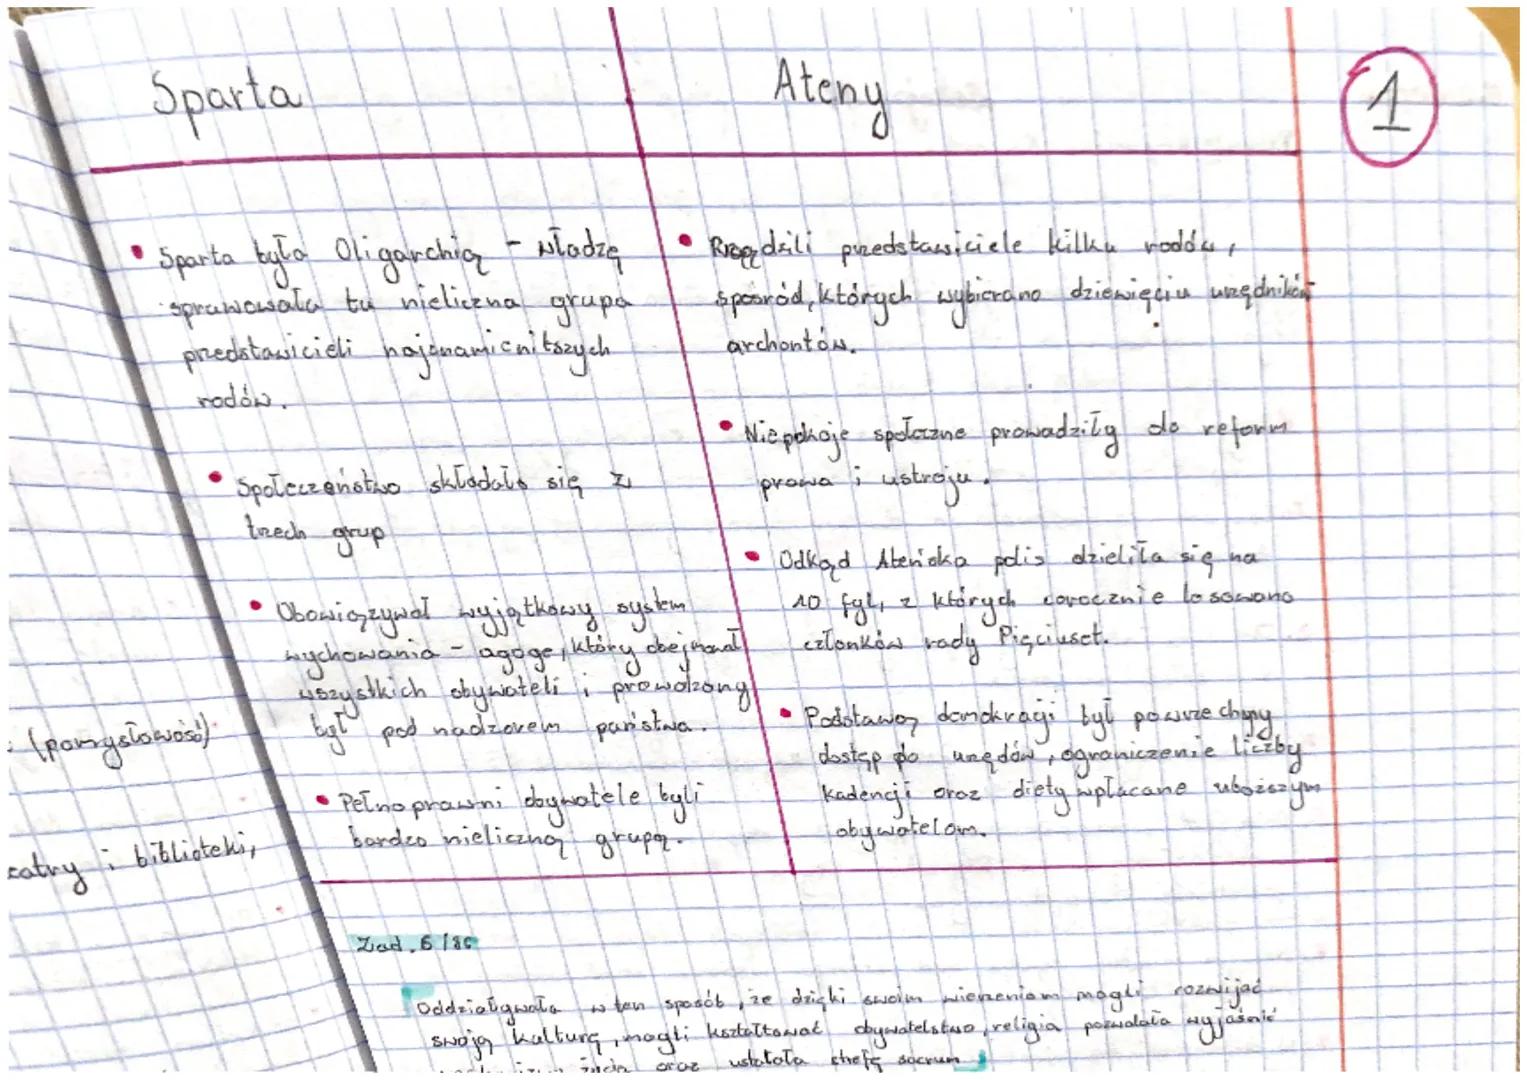 Sparta
Ateny
1
• Sparta była Oligarchią - władzę
sprawowała tu nieliczna grupa
przedstawicieli najznamienitszych
rodów.
• Społeczeństwo składało się z
trzech grup
• Obowiązywał wyjątkowy system
wychowania - agoge, który obejmował
wszystkich obywateli i prowadzony
był pod nadzorem państwa.
• Pełnoprawni obywatele byli
bardzo nieliczną grupą.
• Rządzili przedstawiciele kilku rodów,
spośród, których wybierano dziewięciu urzędników
archontów.
• Niepokoje społeczne prowadziły do reform
prawa i ustroju.
• Odkąd Ateńska polis dzieliła się na
10 fyl, z których corocznie losowano
członków rady Pięciuset.
• Podstawą demokracji był powszechny
dostęp do urzędów, ograniczenie liczby
kadencji oraz diety wpłacane uboższym
obywatelom.
(pomysłowość)
eatry i biblioteki,
Zad. 6/86
Oddziaływała w ten sposób, że dzięki swoim wierzeniom mogli rozwijać
swoją kulturę, mogli kształtować obywatelstwo, religia pozwalała wyjaśnić
życia oraz ustalała sferę sacrum